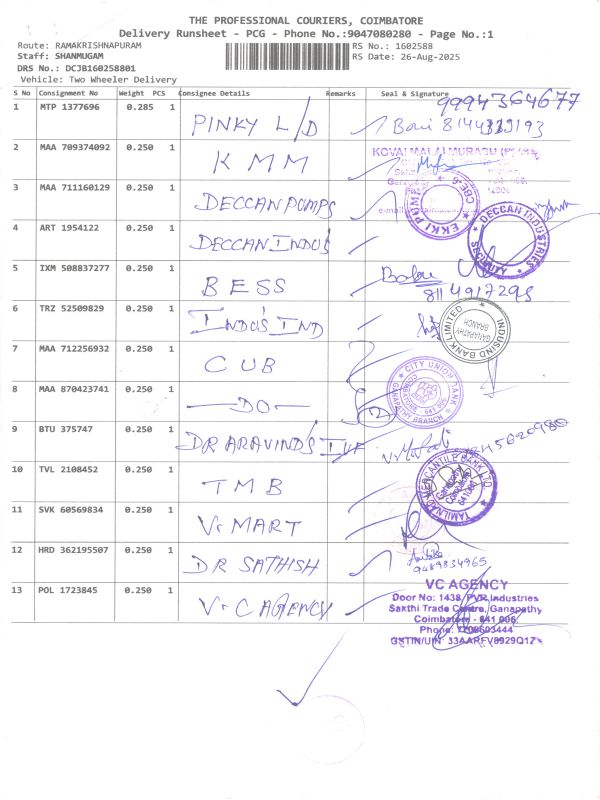 THE PROFESSIONAL COURIERS, COIMBATORE
Delivery Runsheet - PCG - Phone No.:9047080280 - Page No.:1
Route: RAMAKRISHNAPURAM RS No.: 1602588
Staff: SHANMUGAM RS Date: 26-Aug-2025
DRS No.: DCJB160258801
Vehicle: Two Wheeler Delivery
S No Consignment No Weight PCS Consignee Details Remarks Seal & Signature
9994364677
1 MTP 1377696 0.285 1 PINKY L/D
2 MAA 709374092 0.250 1 KMM
3 MAA 711160129 0.250 1 DECCAN PUMPS
4 ART 1954122 0.250 1 DECCAN INDUS
DECCAN INDUSTRIES SECURITY
5 IXM 508837277 0.250 1 BESS
8114917295
6 TRZ 52509829 0.250 1 INDUS IND
INDUSIND BANK LIMITED GANAPATHY BRANCH
7 MAA 712256932 0.250 1 CUB
CITY UNION BANK COIMBATORE - 641 006. GANAPATHY BRANCH
8 MAA 870423741 0.250 1 —DO— 2
9 BTU 375747 0.250 1 DR ARAVIND'S IVF
10 TVL 2108452 0.250 1 TMB
TAMILNAD MERCANTILE BANK LTD
11 SVK 60569834 0.250 1 V. MART
12 HRD 362195507 0.250 1 DR SATHISH
9489834965
13 POL 1723845 0.250 1 V. C AGENCY
VC AGENCY
Door No: 1438, PVR Industries
Sakthi Trade Centre, Ganapathy
Coimbatore - 641 006.
Phone: 7708603444
GSTIN/UIN: 33AARFV8929Q1Z